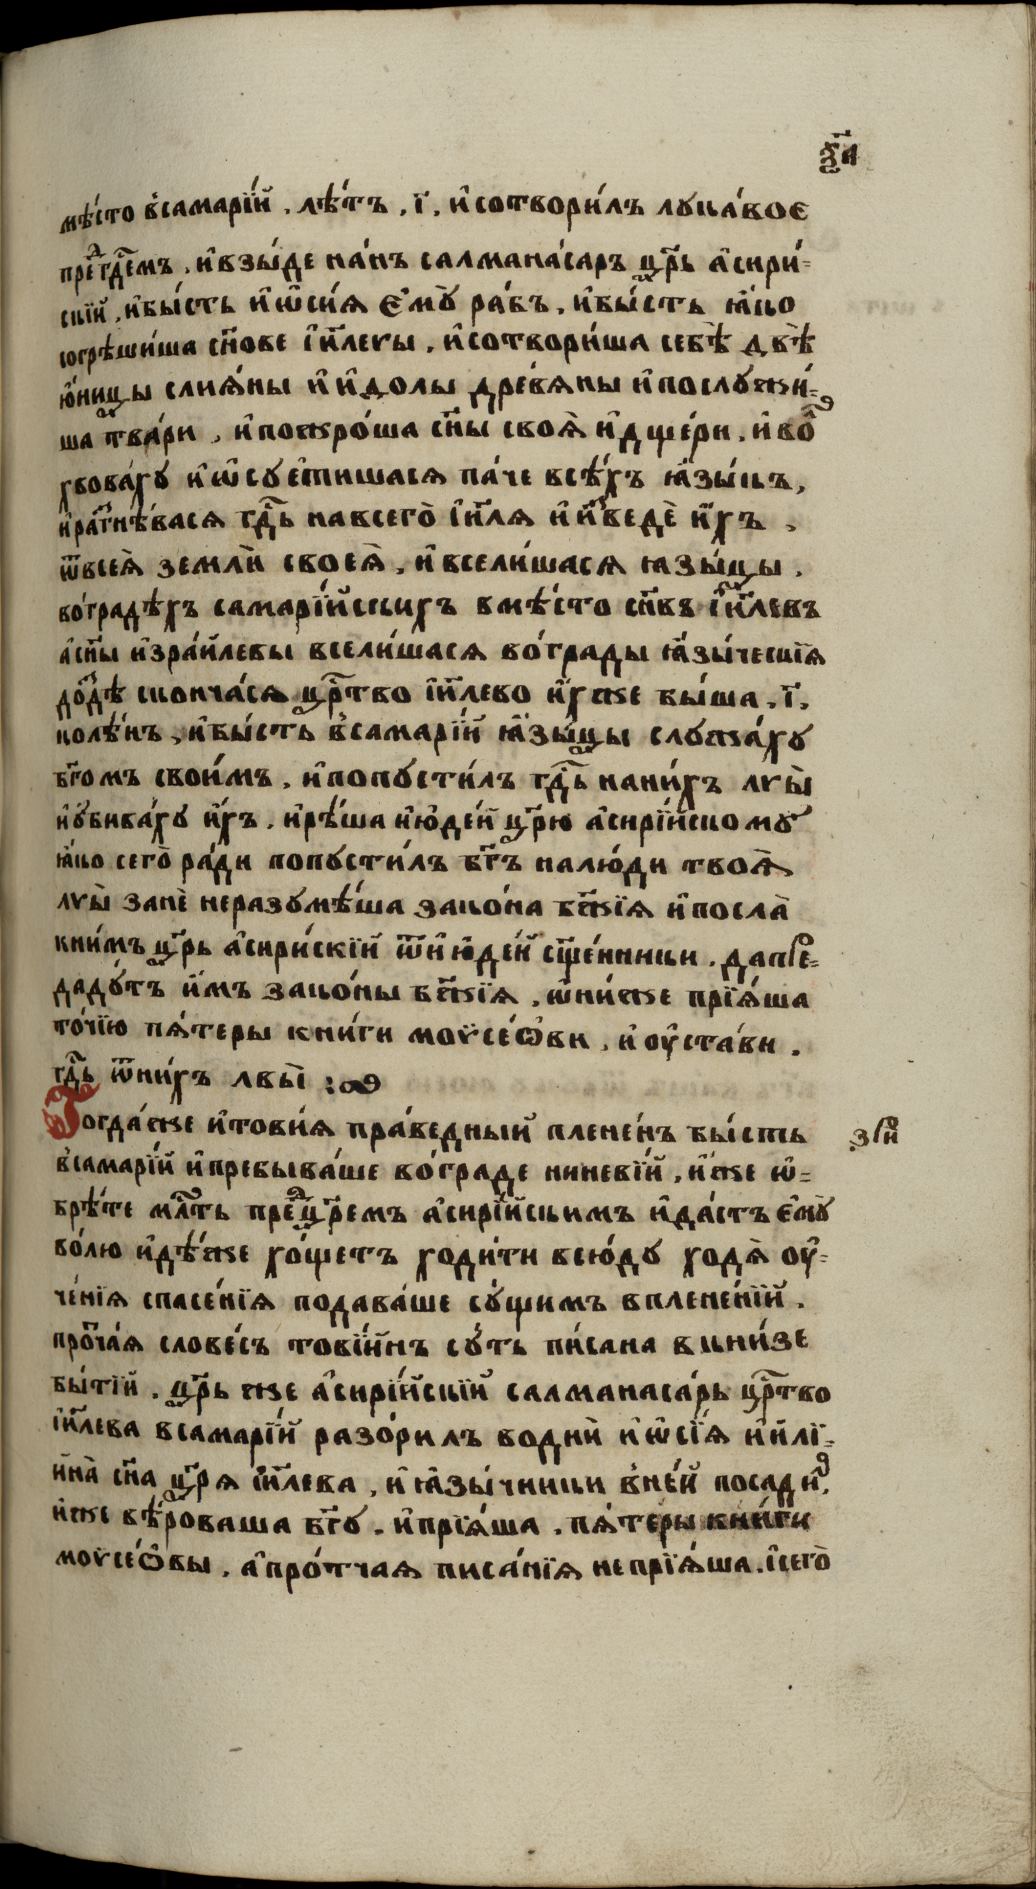 мѣ́сто в̾самарі́й . лѣ́тъ . і҃ . и҆сотвори́лъ лука́вое
пре́дгдⷭ҇емъ . и҆взы́де на́нъ салмана́саръ цр҃ь а҆сири́=
скїй . и҆бы́сть и҆ѡ҆сі́я є҆мꙋ̀ ра́бъ . и҆бы́сть ꙗ҆́ко
согрѣши́ша сн҃ове і҆и҃леꙗы . и҆сотвори́ша себѣ̀ двѣ̀
ю҆́ницы слиѧ́ны и҆ и҆́долы древѧ́ны и҆послꙋжи́=
ша тва́ри . и҆пожро́ша сн҃ы своѧ̀ и҆дще́ри . и҆вол
хвова́хꙋ и҆ѡ҆сꙋе́тишасѧ па́че всѣ́хъ ꙗ҆зы́къ ,
и҆разгнѣ́васѧ гдⷭ҇ь навсего̀ і҆и҃лѧ и҆и҆зведѐ и҆́хъ .
ѿвсеѧ̀ землѝ своеѧ̀ . и҆всели́шасѧ ꙗ҆зы́цы .
во́градѣхъ самарі́йскихъ вмѣ́сто сн҃въ і҆и҃левъ
а҆сн҃ы и҆зра́илевы всели́шасѧ во́грады ꙗ҆зы́ческїѧ
до́ндѣ сконча́сѧ црⷭ҇тво і҆и҃лево и҆́хже бы́ша . і҃ .
колѣ́нъ . и҆бы́сть в̾самарі́й ꙗ҆зы́цы слꙋжа́хꙋ
бг҃омъ свои́мъ . и҆попꙋсти́лъ гдⷭ҇ь нани́хъ лвы̀
и҆ꙋбива́хꙋ и҆́хъ . и҆рѣ́ша и҆ю҆де́й цр҃ю а҆сирі́йскомꙋ
ꙗ҆́ко сего̀ ра́ди попꙋсти́лъ бг҃ъ налю́ди твоѧ̀
лвы̀ занѐ неразꙋмѣ́ша зако́на бж҃їѧ и҆посла̀
кни́мъ цр҃ь а҆сири́скїй ѿи҆ю҆де́й сщ҃е́нники . дапре=
даду́тъ и҆́мъ зако́ны бж҃їѧ . ѡ҆ни́же прїѧ́ша
то́чїю пѧ́теры кни́ги моѵсе́ѡви . и҆ оу҆ста́ви .
гдⷭ҇ь ѿни́хъ лвы̀ :
Тогда́же и҆тові́ѧ пра́ведный плене́нъ бы́сть
в̾самарі́й и҆пребыва́ше во́граде ниневі́й . и҆́же ѡ҆=
брѣ́те млⷭ҇ть пред̾цр҃емъ а҆сирі́йскимъ и҆да́стъ є҆мꙋ̀
во́лю и҆дѣ́же хо́щетъ ходи́ти всю́дꙋ ходѧ̀ оу҆=
че́нїѧ спасе́нїѧ подава́ше сꙋ́щимъ вплене́нїй .
про́чаѧ словесъ тові́инъ сꙋ́ть пи́сана вкни́зе
бы́тїй . цр҃ь же а҆сирі́йскїй салманаса́рь црⷭ҇тво
і҆и҃лева всамарі́й разо́рилъ водни̑ и҆ѡ҆сі́ѧ и҆и҆лї=
ина̀ сн҃а цр҃ѧ і҆и҃лева , и҆ ꙗ҆зы́чники в̾не́й посади ,
и҆́же вѣ́роваша бг҃ꙋ . и҆прїѧ́ша . пѧ́теры кни́ги
моѵсе́ѡвы . а҆про́тчаѧ писа́нїѧ непрїѧ́ша . і҆сего̀